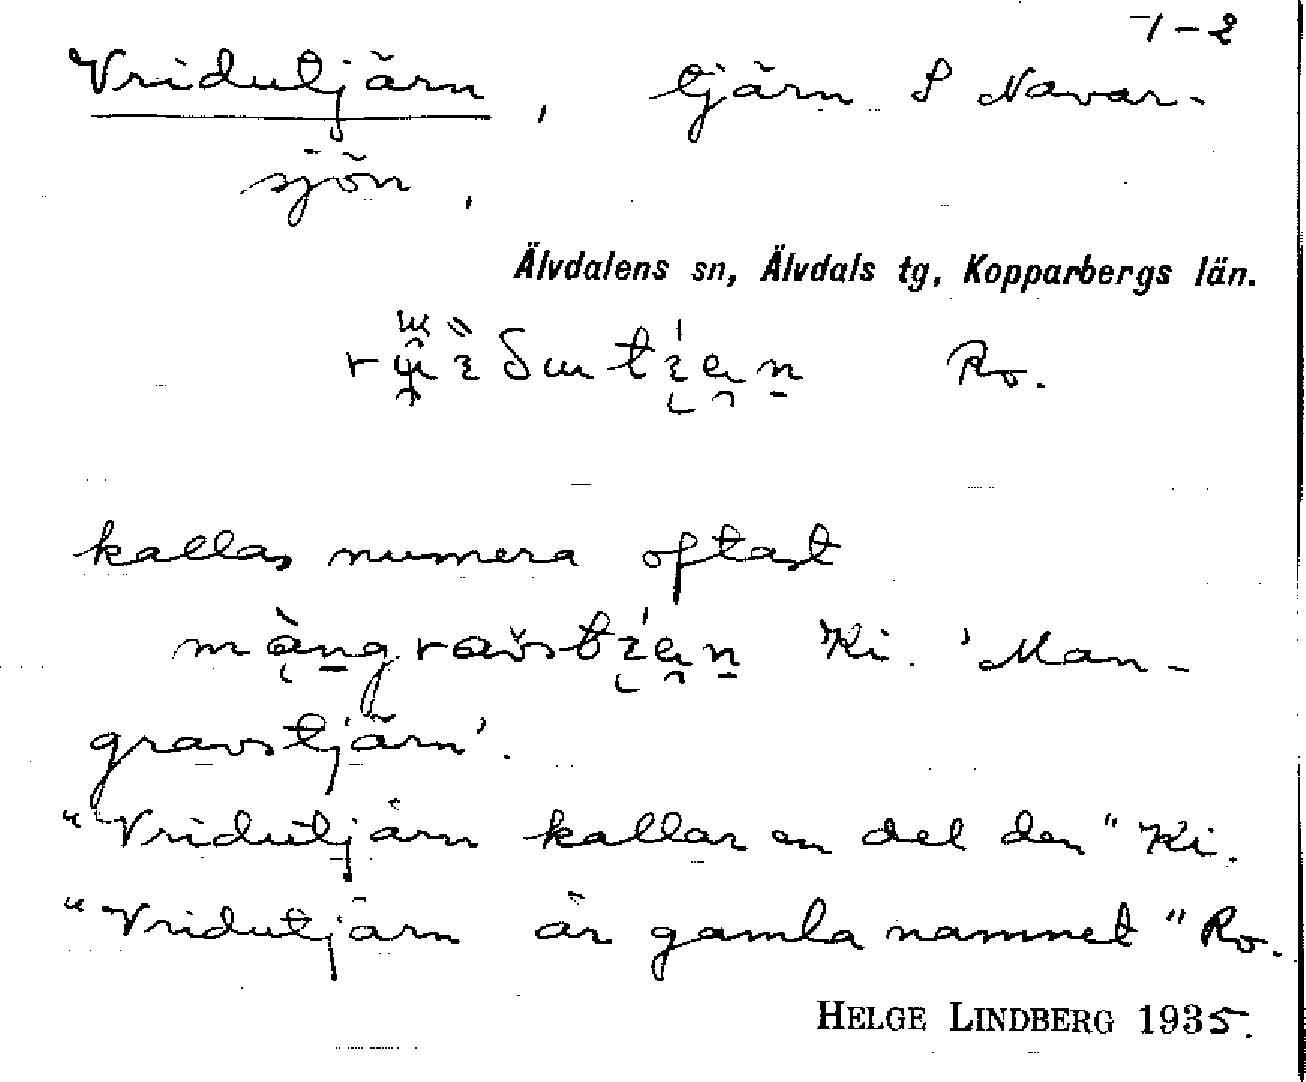 7-2
Vridutjärn, tjärn S Navar-
sjön,
Älvdalens sn, Älvdals tg, Kopparbergs län.
Ro.
kallas numera oftast
Ki. 'Man-
gravstjärn'.
"Vridutjärn kallar en del den" Ki.
"Vridutjärn är gamla namnet" Ro.
HELGE LINDBERG 1935.